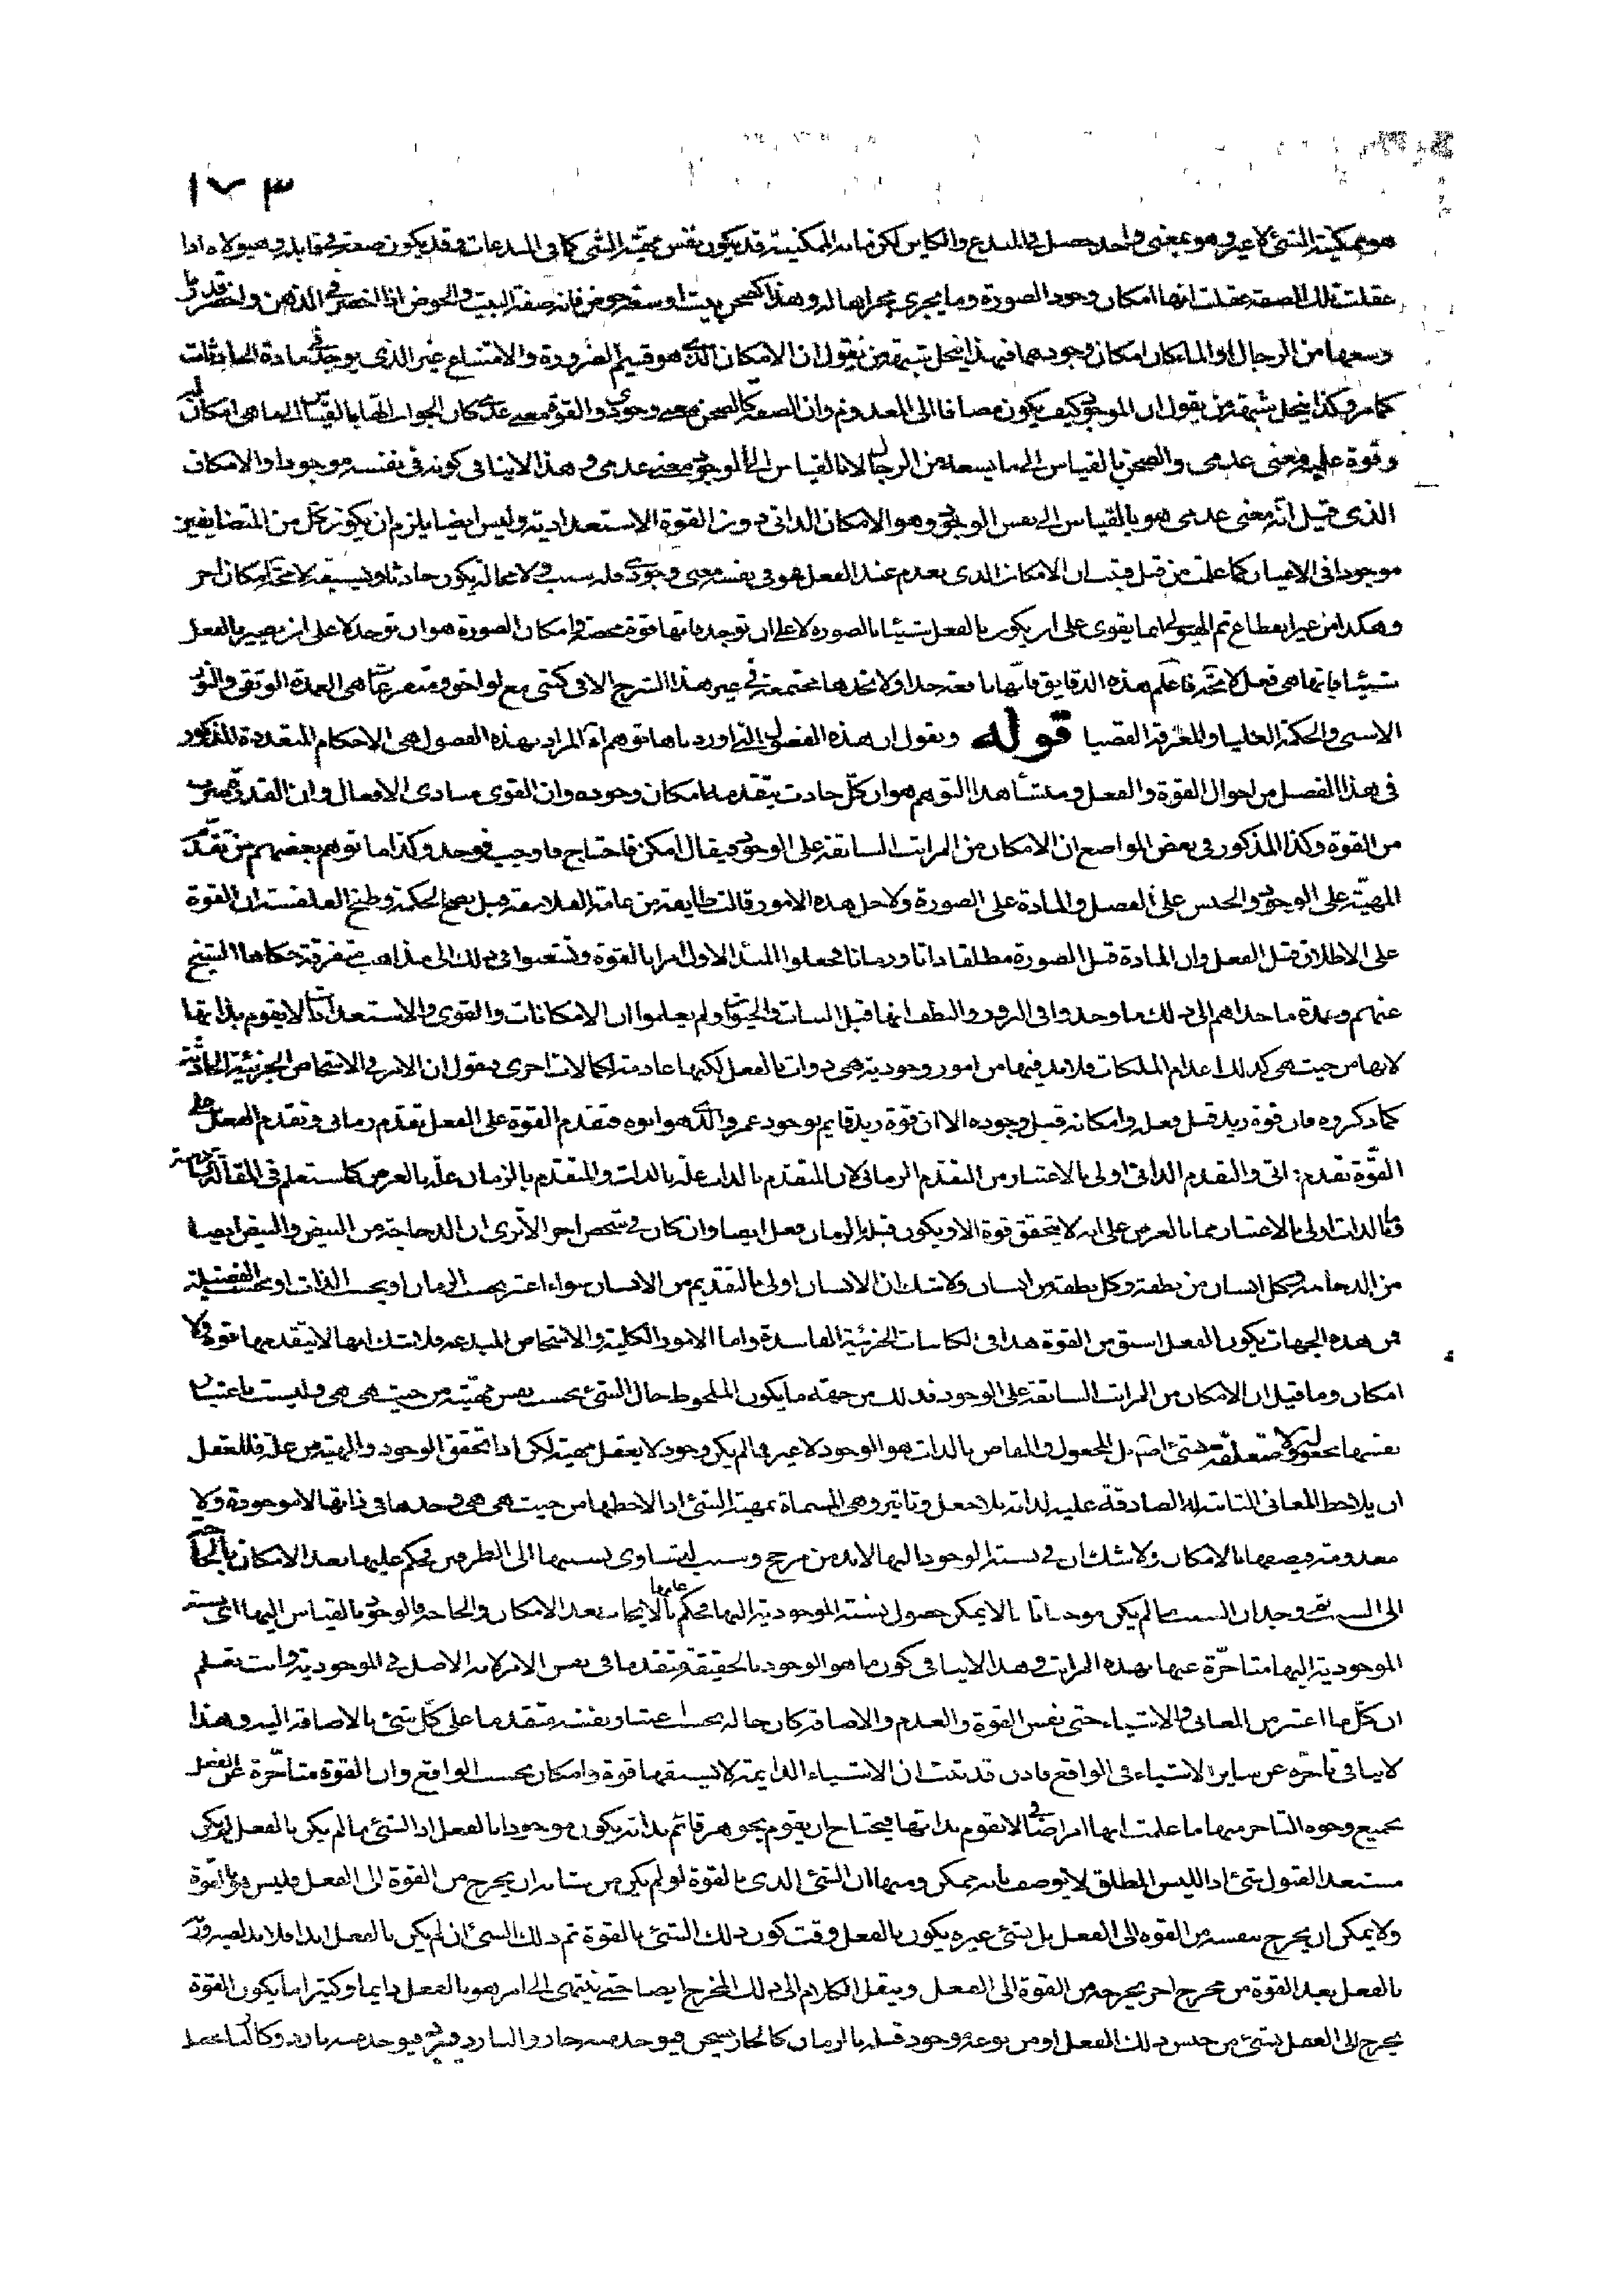 ١٧٣
هو ممكنية الشئ لا غير وهو بمعنى واحد حصل في المبدع والكاين لكن ما به الممكنية قد يكون نفس مهية الشئ كما في المبدعات وقد يكون صفة في قابله وهيولاه اذا
عقلت تلك الصفة عقلت انها امكان وجود الصورة وما يجرى مجراها له وهذا كصحن بيت او سعة حوض فانه صفة البيت والحوض اذا احضر في الذهن واحضر قدر ما
وسعها من الرجال او الماء كان امكان وجودهما فبهذا ينحل شبهة من يقول ان الامكان الذى هو قسيم الضرورة والامتناع غير الذى يوجد في مادة الحادثات
كما مر وكذا ينحل شبهة من يقول ان الموجود كيف يكون مضافا الى المعدوم وان الصفة كالصحن معنى وجودى والقوة معنى عدمى كان الجواب انها بالقياس الى ما هى امكان له
وقوة عليه معنى عدمى والصحن بالقياس الى ما يسعه من الرجال لا بالقياس الى الموجود معنى عدمى وهذا لا ينافى كونه في نفسه موجودا والامكان
الذى قيل انه معنى عدمى هو بالقياس الى نفس الوجود وهو الامكان الذاتى دون القوة الاستعدادية وليس ايضا يلزم ان يكون كل من المتضايفين
موجودا في الاعيان كما علمت من قبل فثبت ان الامكان الذى يعدم عند الفعل هو في نفسه معنى وجودى فله سبب ولا محالة يكون حادثا ويسبقه لا محة امكان اخر
وهكذا من غير انقطاع ثم الهيولى انما يقوى على ان يكون بالفعل شيئا بالصورة لا على ان توجد فانها قوة محضة وامكان الصورة هو ان توجد لا على ان يصير بالفعل
شيئا فانها هى فعل لا محة فاعلم هذه الدقايق فانها نافعة جدا ولا تجدها مجتمعة في غير هذا الشرح الا في كتبى مع لواحق ومتفرعات هى العمدة الوثقى والنور
الاسنى والحكمة العليا والمعرفة القصيا قوله ونقول ان هذه الفصول التى اوردناها توهم آه المراد بهذه الفصول هى الاحكام المتعددة المذكور
في هذا الفصل من احوال القوة والفعل ومنشأ هذا التوهم هو ان كل حادث يتقدمه امكان وجوده وان القوى مبادى الافعال وان القدرة ضرب
من القوة وكذا المذكور في بعض المواضع ان الامكان من المراتب السابقة على الوجود فيقال امكن فاحتاج فاوجب فوجد وكذا ما توهم بعضهم من تقدم
المهية على الوجود والجنس على الفصل والمادة على الصورة ولاجل هذه الامور قالت طايفة من عامة الفلاسفة قبل نضج الحكمة وطبخ الفلسفة ان القوة
على الاطلاق قبل الفعل وان المادة قبل الصورة مطلقا ذاتا وزمانا فجعلوا المبدأ الاول امرا بالقوة وتشعبوا في ذلك الى مذاهب متفرقة حكاها الشيخ
عنهم وعمدة ما حداهم الى ذلك ما وجدوا في البزور والنطف انها قبل النبات والحيوان ولم يعلموا ان الامكانات والقوى والاستعدادات لا يقوم بذاتها
لانها من حيث هى كذلك اعدام الملكات فلا بد فيها من امور وجودية هى ذوات بالفعل لكنها عادمة لكمالات اخرى ونقول ان الامر في الاشخاص الجزئية الحادثة
كما ذكروه فان قوة زيد قبل فعله وامكانه قبل وجوده الا ان قوة زيد قايم بوجود عمرو الذى هو ابوه فتقدم القوة على الفعل تقدم زمانى وتقدم الفعل على
القوة تقدم ذاتى والتقدم الذاتى اولى بالاعتبار من التقدم الزمانى لان المتقدم بالذات علة بالذات والمتقدم بالزمان علة بالعرض كما ستعلم في المقالة السادسة
وما بالذات اولى بالاعتبار مما بالعرض على انه لا يتحقق قوة الا ويكون قبلها بالزمان فعل ايضا وان كان في شخص اخر الا ترى ان الدجاجة من البيض والبيض ايضا
من الدجاجة وكل انسان من نطفة وكل نطفة من انسان ولا شك ان الانسان اولى بالتقديم من الانسان سواء اعتبر بحسب الزمان او بحسب الذات او بحسب الفضيلة
فمن هذه الجهات يكون الفعل اسبق من القوة هذا في الكاينات الجزئية الفاسدة واما الامور الكلية والاشخاص المبدعة فلا شك انها لا يتقدمها قوة ولا
امكان وما قيل ان الامكان من المراتب السابقة على الوجود فذلك من جهة ما يكون الملحوظ حال الشئ بحسب نفس مهيته من حيث هى هى وليست باعتبار
نفسها مجعولة ولا متعلقة بشئ اصلا بل المجعول والفايض بالذات هو الوجود لا غير فما لم يكن وجود لا يعقل مهية لكن اذا تحقق الوجود والمهية من علة فللعقل
ان يلاحظ المعانى الثابتة له الصادقة عليه لذاته بلا جعل وتاثير وهى المسماة بمهية الشئ اذا لاحظها من حيث هى هى وجدها في ذاتها لا موجودة ولا
معدومة فيصفها بالامكان ولا شك ان في نسبة الوجود اليها لابد من مرجح وسبب لتساوى نسبتها الى الطرفين فحكم عليها بعد الامكان بالحاجة
الى السبب ثم وجد ان السبب ما لم يكن موجبا تاما لا يمكن حصول نسبة الموجودية اليها فحكم عليها بالايجاب بعد الامكان والحاجة والوجود بالقياس اليها اى نسبة
الموجودية اليها متاخرة عنها بهذه المراتب وهذا لا ينافى كون ما هو الوجود بالحقيقة متقدما في نفس الامر لانه الاصل في الموجودية وانت تعلم
ان كل ما اعتبر من المعانى والاشياء حتى نفس القوة والعدم والاضافة كان حاله بحسب اعتبار نفسه متقدما على كل شئ بالاضافة اليه وهذا
لا ينافى تاخره عن ساير الاشياء في الواقع فاذن قد ثبت ان الاشياء الدايمة لا يسبقها قوة وامكان بحسب الواقع وان القوة متاخرة عن الفعل
بجميع وجوه التاخر منها ما علمت انها امر اضافى لا تقوم بذاتها فيحتاج ان يقوم بجوهر قائم بذاته يكون موجودا بالفعل اذ الشئ ما لم يكن بالفعل لم يكن
مستعدا لقبول شئ اذ الليس المطلق لا يوصف بانه ممكن ومنها ان الشئ الذى بالقوة لو لم يكن من شانه ان يخرج من القوة الى الفعل فليس هو بالقوة
ولا يمكن ان يخرج بنفسه من القوة الى الفعل بل بشئ غيره يكون بالفعل وقت كون ذلك الشئ بالقوة ثم ذلك الشئ ان لم يكن بالفعل ابدا فلا بد لصيرورته
بالفعل بعد القوة من مخرج اخر يخرجه من القوة الى الفعل وينقل الكلام الى ذلك المخرج ايضا حتى ينتهى الى امر هو بالفعل دايما وكثيرا ما يكون القوة
يخرج الى الفعل بشئ من جنس ذلك الفعل او من نوعه وجود قبله بالزمان كالحار يسخن فيوجد منه حار والبارد يبرد فيوجد منه بارد وكالبناء